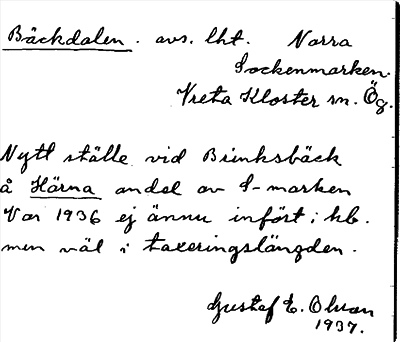 Bäckdalen. avs. lht. Norra
Sockenmarken.
Vreta Kloster sn. Ög.
Nytt ställe vid Brinksbäck
å Härna andel av S-marken
Var 1936 ej ännu infört i kb.
men väl i taxeringslängden.
Gustaf E. Olson
1937.